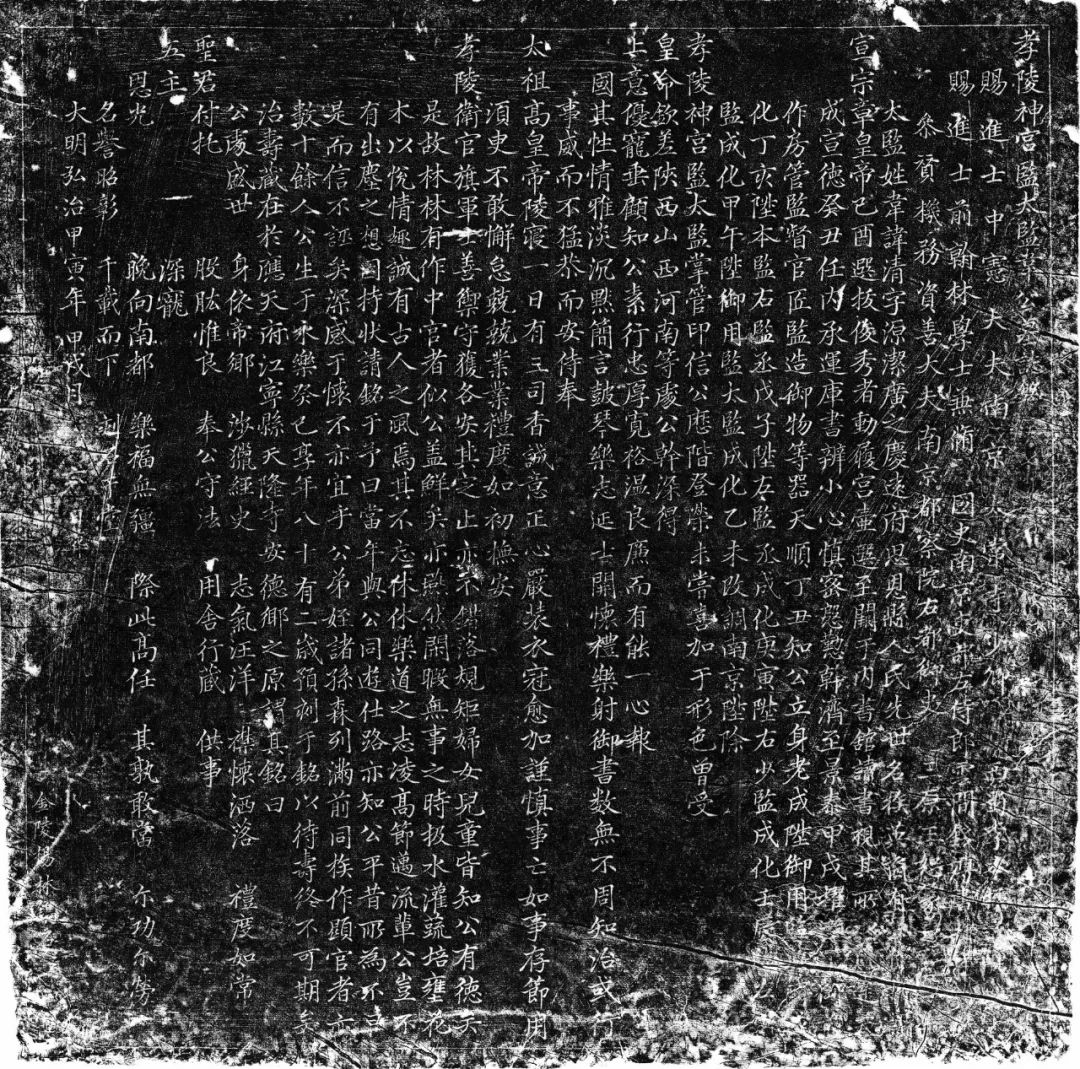 孝陵神宮監太監韋公壽藏銘
賜進士中憲大夫南京太常寺少卿
賜進士前翰林學士兼脩國史南京吏部左侍郎
叅贊機務資善大夫南京都察院右都御史
太監姓韋諱清字源潔廣之慶遠府思恩縣人氏先世名族
宣宗章皇帝己酉選拔俊秀者動履宮壼選至闕于內書館讀書視其所
成宣德癸丑任內承運庫書辦小心慎密懃懃幹濟至景泰甲戌擢
作房管監督官匠監造御物等器天順丁丑知公立身老成陞御用監
化丁亥陞本監右監丞戊子陞左監丞成化庚寅陞右少監成化壬辰
監成化甲午陞御用監太監成化乙未改調南京陞除
孝陵神宮監太監掌管印信公歷階登榮未嘗喜加于形色曾受
皇命欽差陝西山西河南等處公幹深得
上意優寵垂顧知公素行忠厚寬裕温良廉而有能一心報
國其性情雅淡沉默簡言皷琴樂志延士開懷禮樂射御書数無不周知治或行
事威而不猛恭而安侍奉
太祖高皇帝陵寢一日有三司香誠意正心嚴装衣冠愈加謹慎事亡如事存節用
湏臾不敢懈怠兢兢業業禮度如初撫安
孝陵衛官旗軍士善禦守獲各安其定止亦不錯落規矩婦女兒童皆知公有德矣
是故林林有作中官者似公盖鮮矣亦熙然閑暇無事之時扱水灌蔬培壅花
木以悅情趣誠有古人之風焉其不忘休休樂道之志凌高節邁流輩公豈不
有出塵之想囙持狀請銘于予曰當年與公同遊仕路亦知公平昔所為不言
是而信不誣矣深感于懷不亦宜乎公弟姪諸孫森列滿前同族作顯官者亦
數十餘人公生于永樂癸巳享年八十有二歲預刻于銘以待壽終不可期矣
治壽藏在於應天府江寧縣天隆寺安德鄉之原謂其銘曰
公處盛世 身依帝鄉 涉獵經史 志氣汪洋 襟懷洒落 禮度如常
聖君付托 股肱惟良 奉公守法 用舍行藏 供事
五主 一 深寵
恩光 晚向南都 樂福無疆 際此高任 其孰敢當 尔功尔勞
名譽昭彰 千載而下
大明弘治甲寅年甲戌月